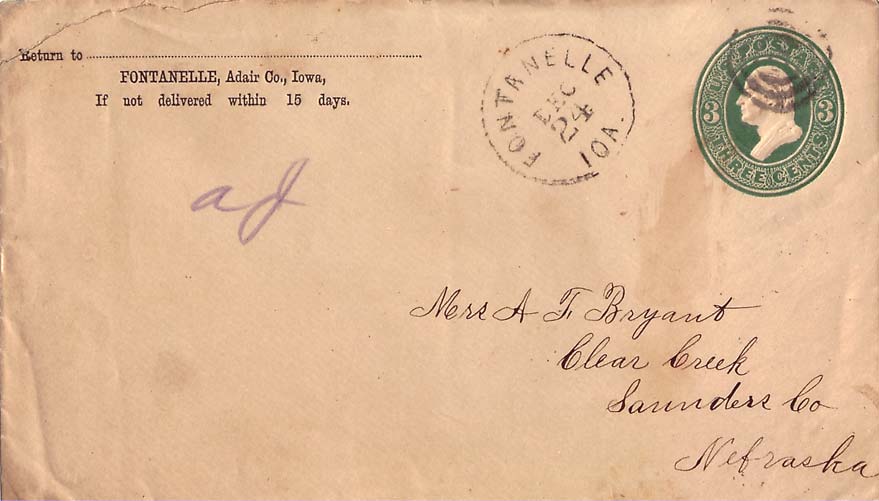 Return to
FONTANELLE, Adair Co., Iowa,
If not delivered within 15 days.
FONTANELLE
DEC
24
IOA.
U.S. POSTAGE
3 3
THREE CENTS
a J
Mrs A F Bryant
Clear Creek
Saunders Co
Nebraska